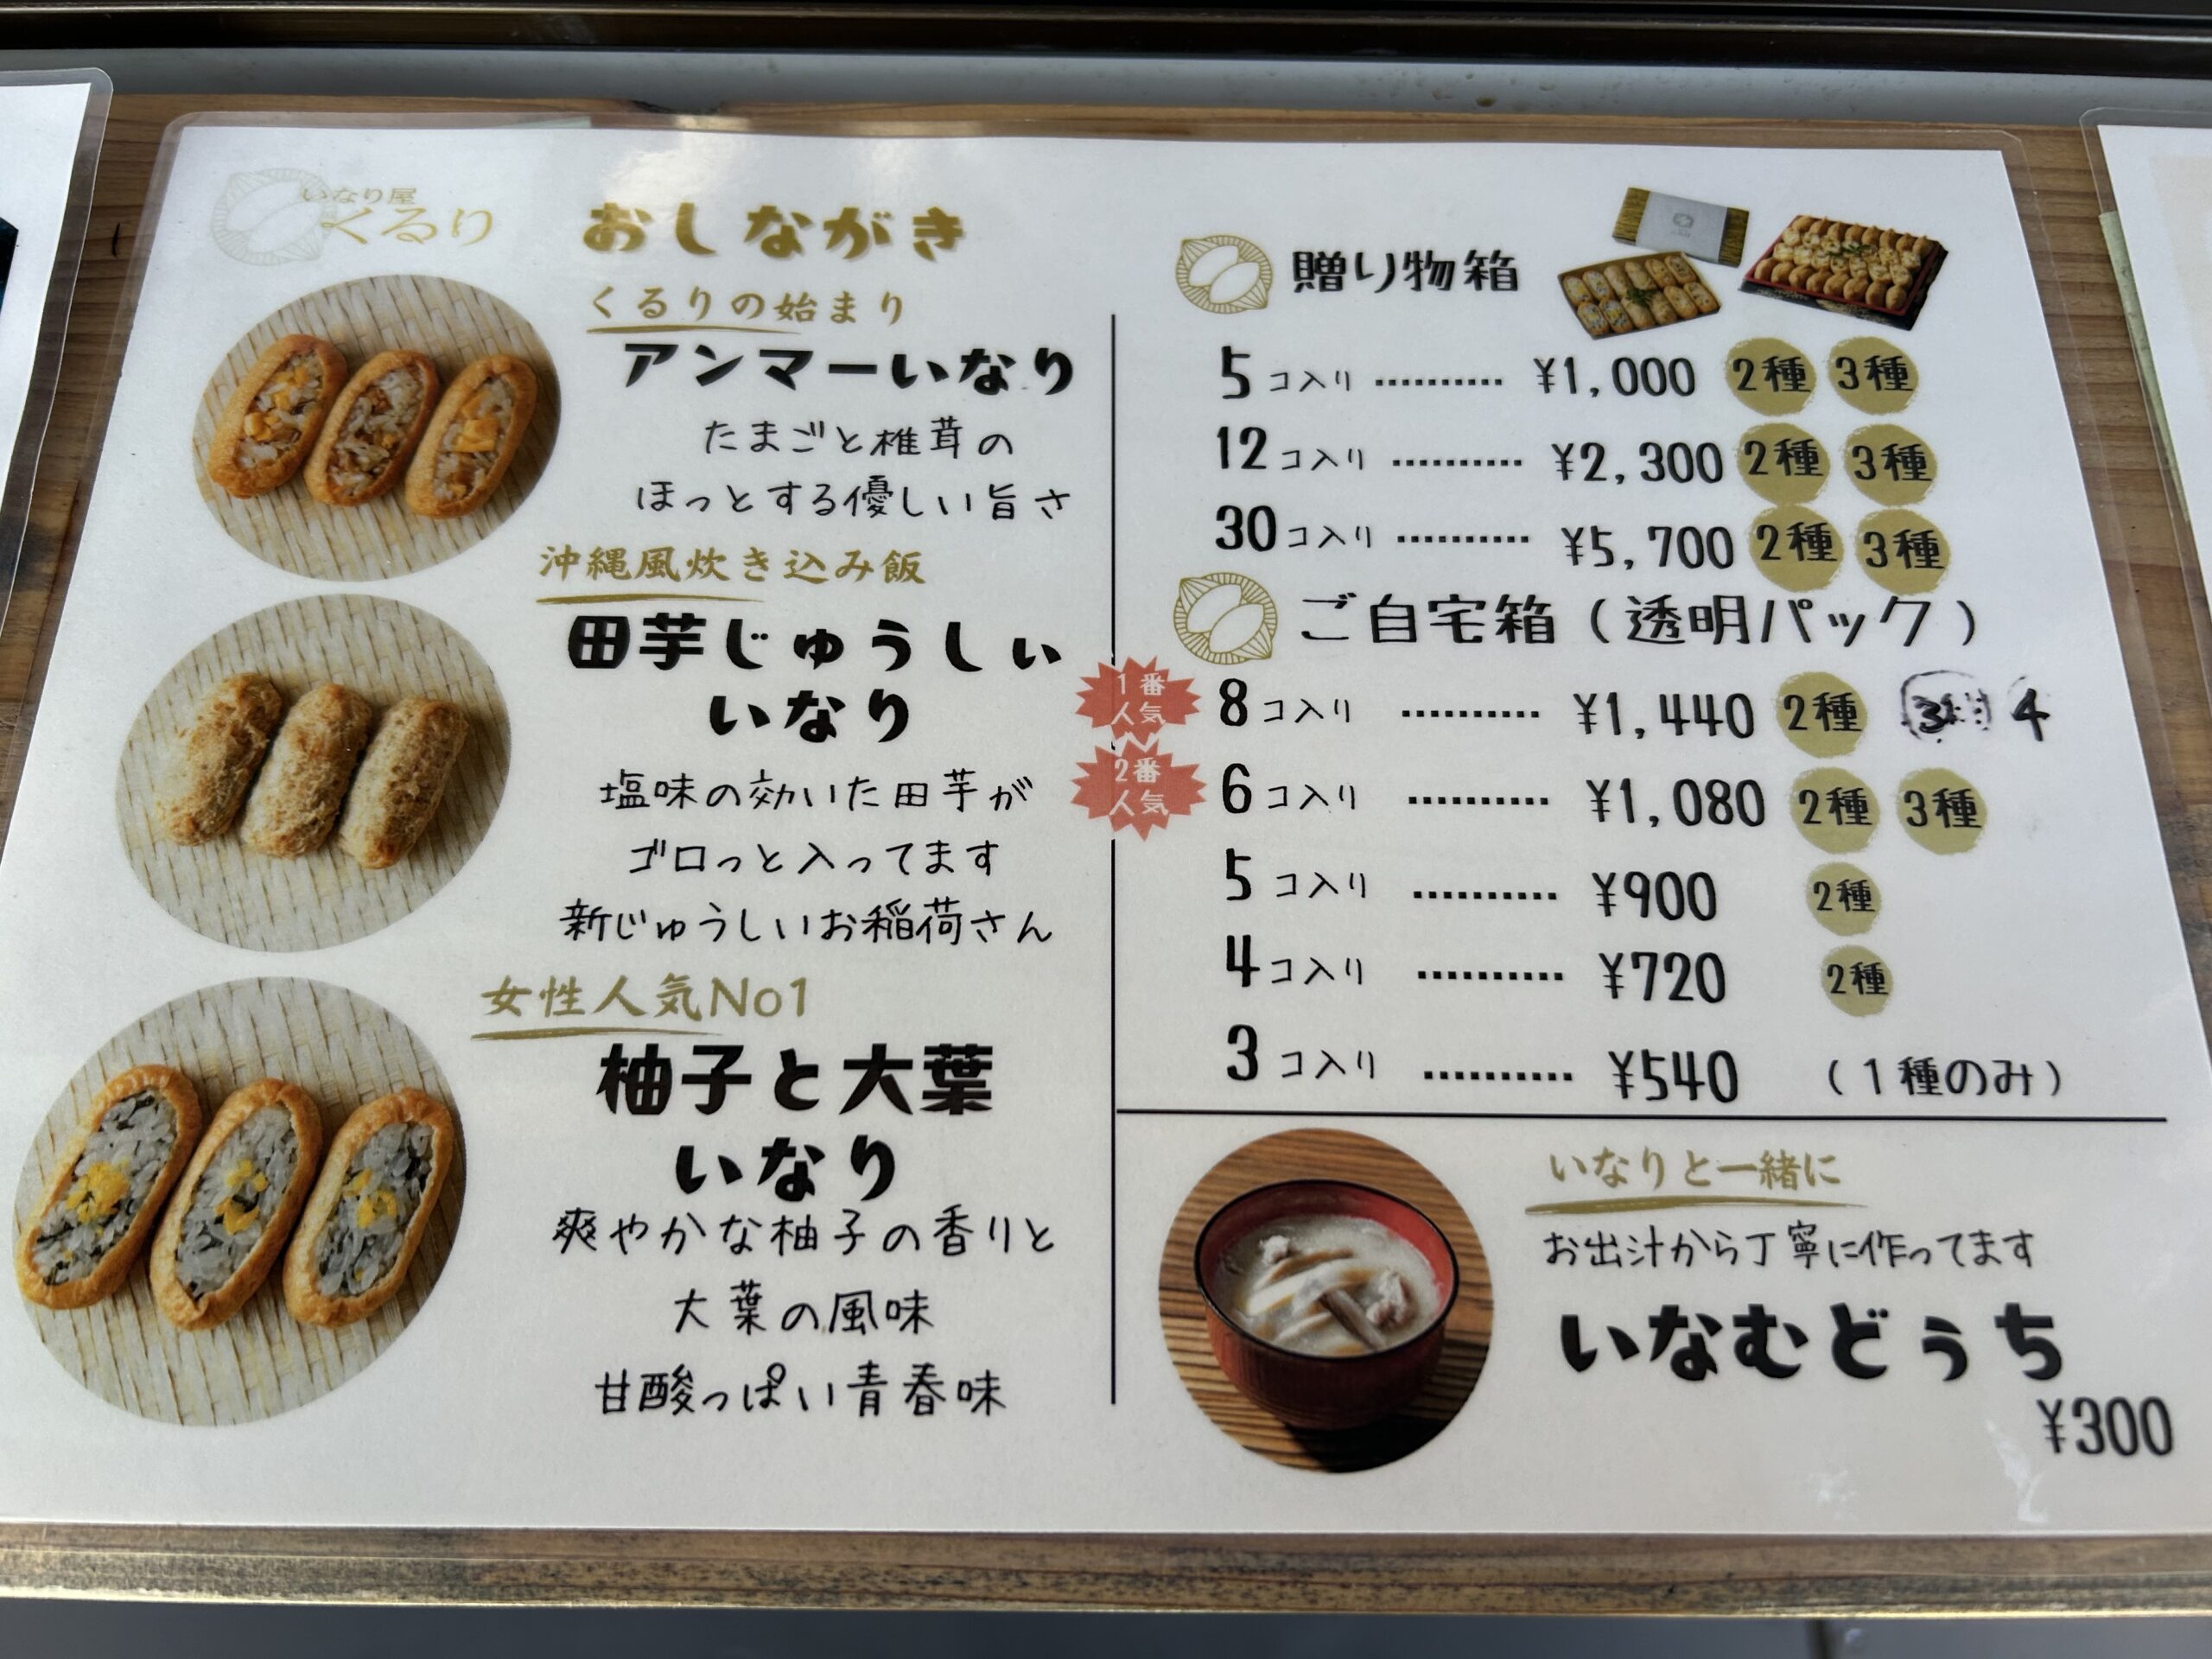 いなり屋
くるり
おしながき
くるりの始まり
アンマーいなり
たまごと椎茸の
ほっとする優しい旨さ
沖縄風炊き込み飯
田芋じゅうしぃ
いなり
塩味の効いた田芋が
ゴロっと入ってます
新じゅうしいお稲荷さん
女性人気No1
柚子と大葉
いなり
爽やかな柚子の香りと
大葉の風味
甘酸っぱい青春味
贈り物箱
5コ入り ………… ¥1,000 2種 3種
12コ入り ………… ¥2,300 2種 3種
30コ入り ………… ¥5,700 2種 3種
ご自宅箱(透明パック)
1番人気 8コ入り ………… ¥1,440 2種 3 4
2番人気 6コ入り ………… ¥1,080 2種 3種
5コ入り ………… ¥900 2種
4コ入り ………… ¥720 2種
3コ入り ………… ¥540 (1種のみ)
いなりと一緒に
お出汁から丁寧に作ってます
いなむどぅち
¥300